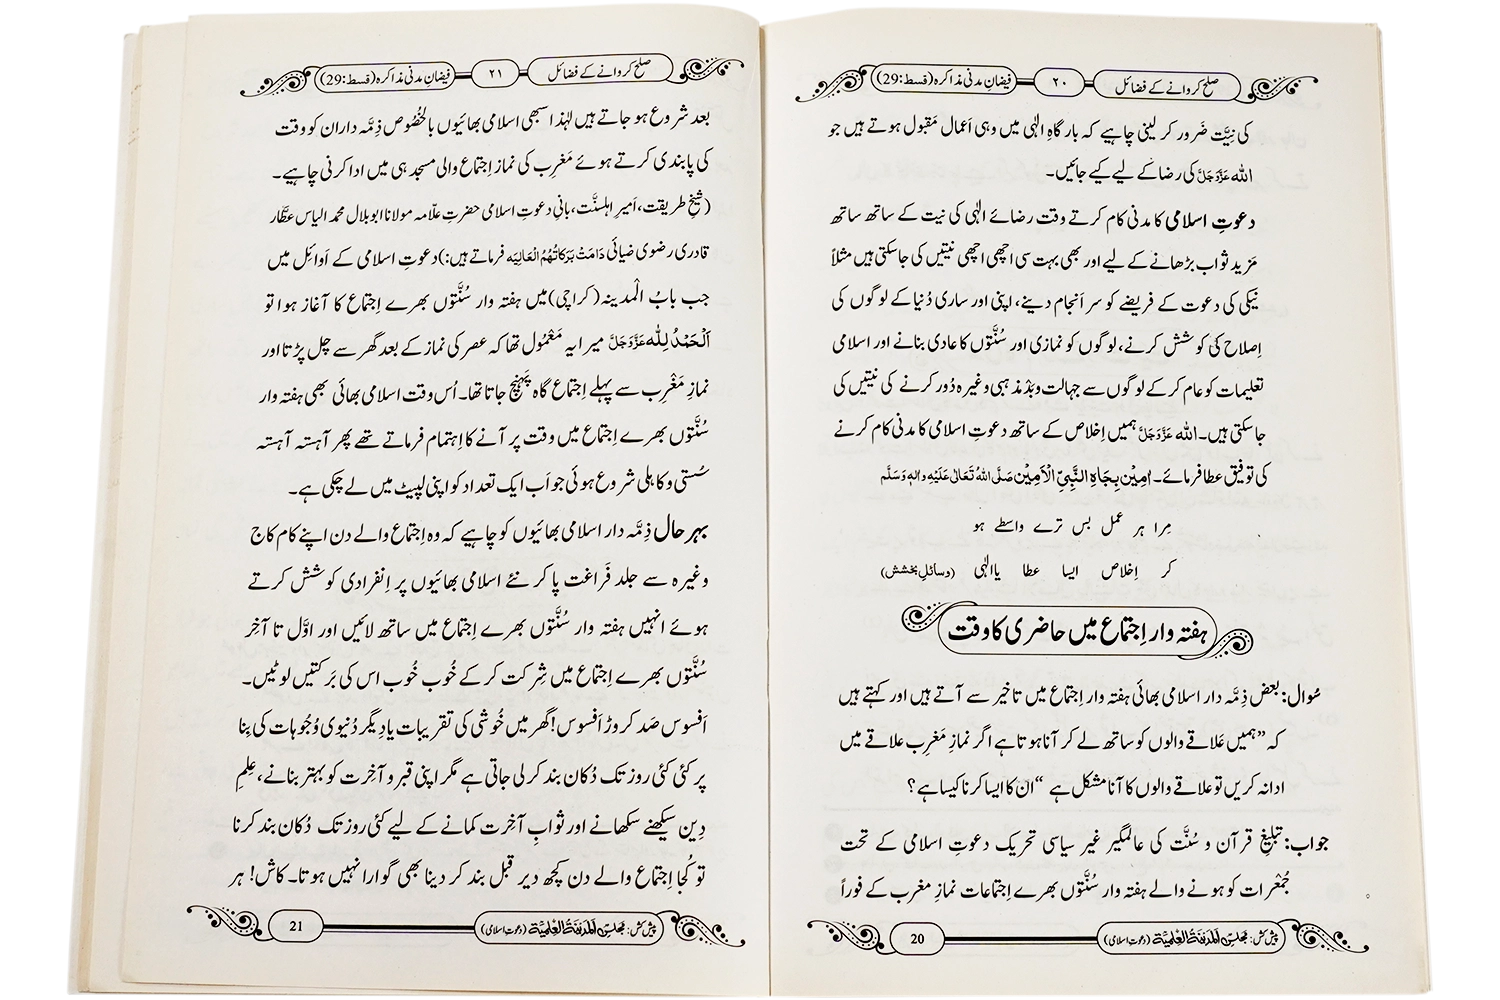 صلح کروانے کے فضائل
۲۰
فیضانِ مدنی مذاکرہ (قسط:29)
کی نِیَّت ضَرور کر لینی چاہیے کہ بارگاہِ الٰہی میں وہی اَعمال مَقبول ہوتے ہیں جو
اللہ عَزَّوَجَلَّ کی رضا کے لیے کیے جائیں۔
دعوتِ اسلامی کا مدنی کام کرتے وقت رضائے الٰہی کی نیت کے ساتھ ساتھ
مَزید ثواب بڑھانے کے لیے اور بھی بہت سی اچھی اچھی نیتیں کی جاسکتی ہیں مثلاً
نیکی کی دعوت کے فریضے کو سر اَنجام دینے، اپنی اور ساری دُنیا کے لوگوں کی
اِصلاح کی کوشش کرنے، لوگوں کو نمازی اور سُنَّتوں کا عادی بنانے اور اسلامی
تعلیمات کو عام کر کے لوگوں سے جہالت و بَدْ مذہبی وغیرہ دُور کرنے کی نیتیں کی
جاسکتی ہیں۔ اللہ عَزَّوَجَلَّ ہمیں اِخلاص کے ساتھ دعوتِ اسلامی کا مدنی کام کرنے
کی توفیق عطا فرمائے۔ اٰمِیْن بِجَاہِ النَّبِیِّ الْاَمِیْن صَلَّی اللہُ تَعَالٰی عَلَیْہِ واٰلہٖ وَسَلَّم
مِرا ہر عمل بس ترے واسطے ہو
کر اِخلاص ایسا عطا یاالٰہی (وسائلِ بخشش)
ہفتہ وار اِجتماع میں حاضری کا وقت
سُوال: بعض ذِمَّہ دار اسلامی بھائی ہفتہ وار اِجتماع میں تاخیر سے آتے ہیں اور کہتے ہیں
کہ ”ہمیں عَلاقے والوں کو ساتھ لے کر آنا ہوتا ہے اگر نمازِ مَغرِب علاقے میں
ادا نہ کریں تو علاقے والوں کا آنا مشکل ہے “ ان کا ایسا کرنا کیسا ہے؟
جواب: تبلیغِ قرآن و سُنَّت کی عالمگیر غیر سیاسی تحریک دعوتِ اسلامی کے تحت
جُمْعرات کو ہونے والے ہفتہ وار سُنَّتوں بھرے اِجتماعات نمازِ مغرب کے فوراً
پیش کش: مجلس اَلْمَدِیْنَۃُ الْعِلْمِیَّۃ (دعوتِ اسلامی)
20
صلح کروانے کے فضائل
۲۱
فیضانِ مدنی مذاکرہ (قسط:29)
بعد شروع ہو جاتے ہیں لہٰذا سبھی اسلامی بھائیوں بالخُصُوص ذِمَّہ داران کو وقت
کی پابندی کرتے ہوئے مَغرِب کی نماز اِجتماع والی مسجد ہی میں ادا کرنی چاہیے۔
(شیخِ طریقت، اَمیرِ اہلسنَّت، بانیِ دعوتِ اسلامی حضرتِ علّامہ مولانا ابو بلال محمد الیاس عطّار
قادری رضوی ضیائی دَامَتْ بَرَکَاتُہُمُ الْعَالِیَہ فرماتے ہیں:) دعوتِ اسلامی کے اَوائل میں
جب بابُ المدینہ (کراچی) میں ہفتہ وار سُنَّتوں بھرے اِجتماع کا آغاز ہوا تو
اَلْحَمْدُ لِلّٰہ عَزَّوَجَلَّ میرا یہ مَعْمُول تھا کہ عصر کی نماز کے بعد گھر سے چل پڑتا اور
نمازِ مَغْرِب سے پہلے اِجتماع گاہ پَہُنچ جاتا تھا۔ اُس وقت اسلامی بھائی بھی ہفتہ وار
سُنَّتوں بھرے اِجتماع میں وقت پر آنے کا اِہتمام فرماتے تھے پھر آہستہ آہستہ
سُستی و کاہلی شروع ہوئی جو اَب ایک تعداد کو اپنی لپیٹ میں لے چکی ہے۔
بہر حال ذِمَّہ دار اسلامی بھائیوں کو چاہیے کہ وہ اِجتماع والے دن اپنے کام کاج
وغیرہ سے جلد فَراغت پا کر نئے اسلامی بھائیوں پر اِنفرادی کوشش کرتے
ہوئے انہیں ہفتہ وار سُنَّتوں بھرے اِجتماع میں ساتھ لائیں اور اوَّل تا آخِر
سُنَّتوں بھرے اِجتماع میں شِرکت کر کے خُوب خُوب اس کی بَرکتیں لوٹیں۔
اَفسوس صَد کروڑ اَفسوس! گھر میں خُوشی کی تقریبات یا دِیگر دُنیوی وُجُوہات کی بِنا
پر کئی کئی روز تک دُکان بند کر لی جاتی ہے مگر اپنی قبر و آخِرت کو بہتر بنانے، عِلمِ
دِین سیکھنے سکھانے اور ثوابِ آخِرت کمانے کے لیے کئی روز تک دُکان بند کرنا
تو کُجا اِجتماع والے دن کچھ دیر قبل بند کر دینا بھی گوارا نہیں ہوتا۔ کاش! ہر
پیش کش: مجلس اَلْمَدِیْنَۃُ الْعِلْمِیَّۃ (دعوتِ اسلامی)
21